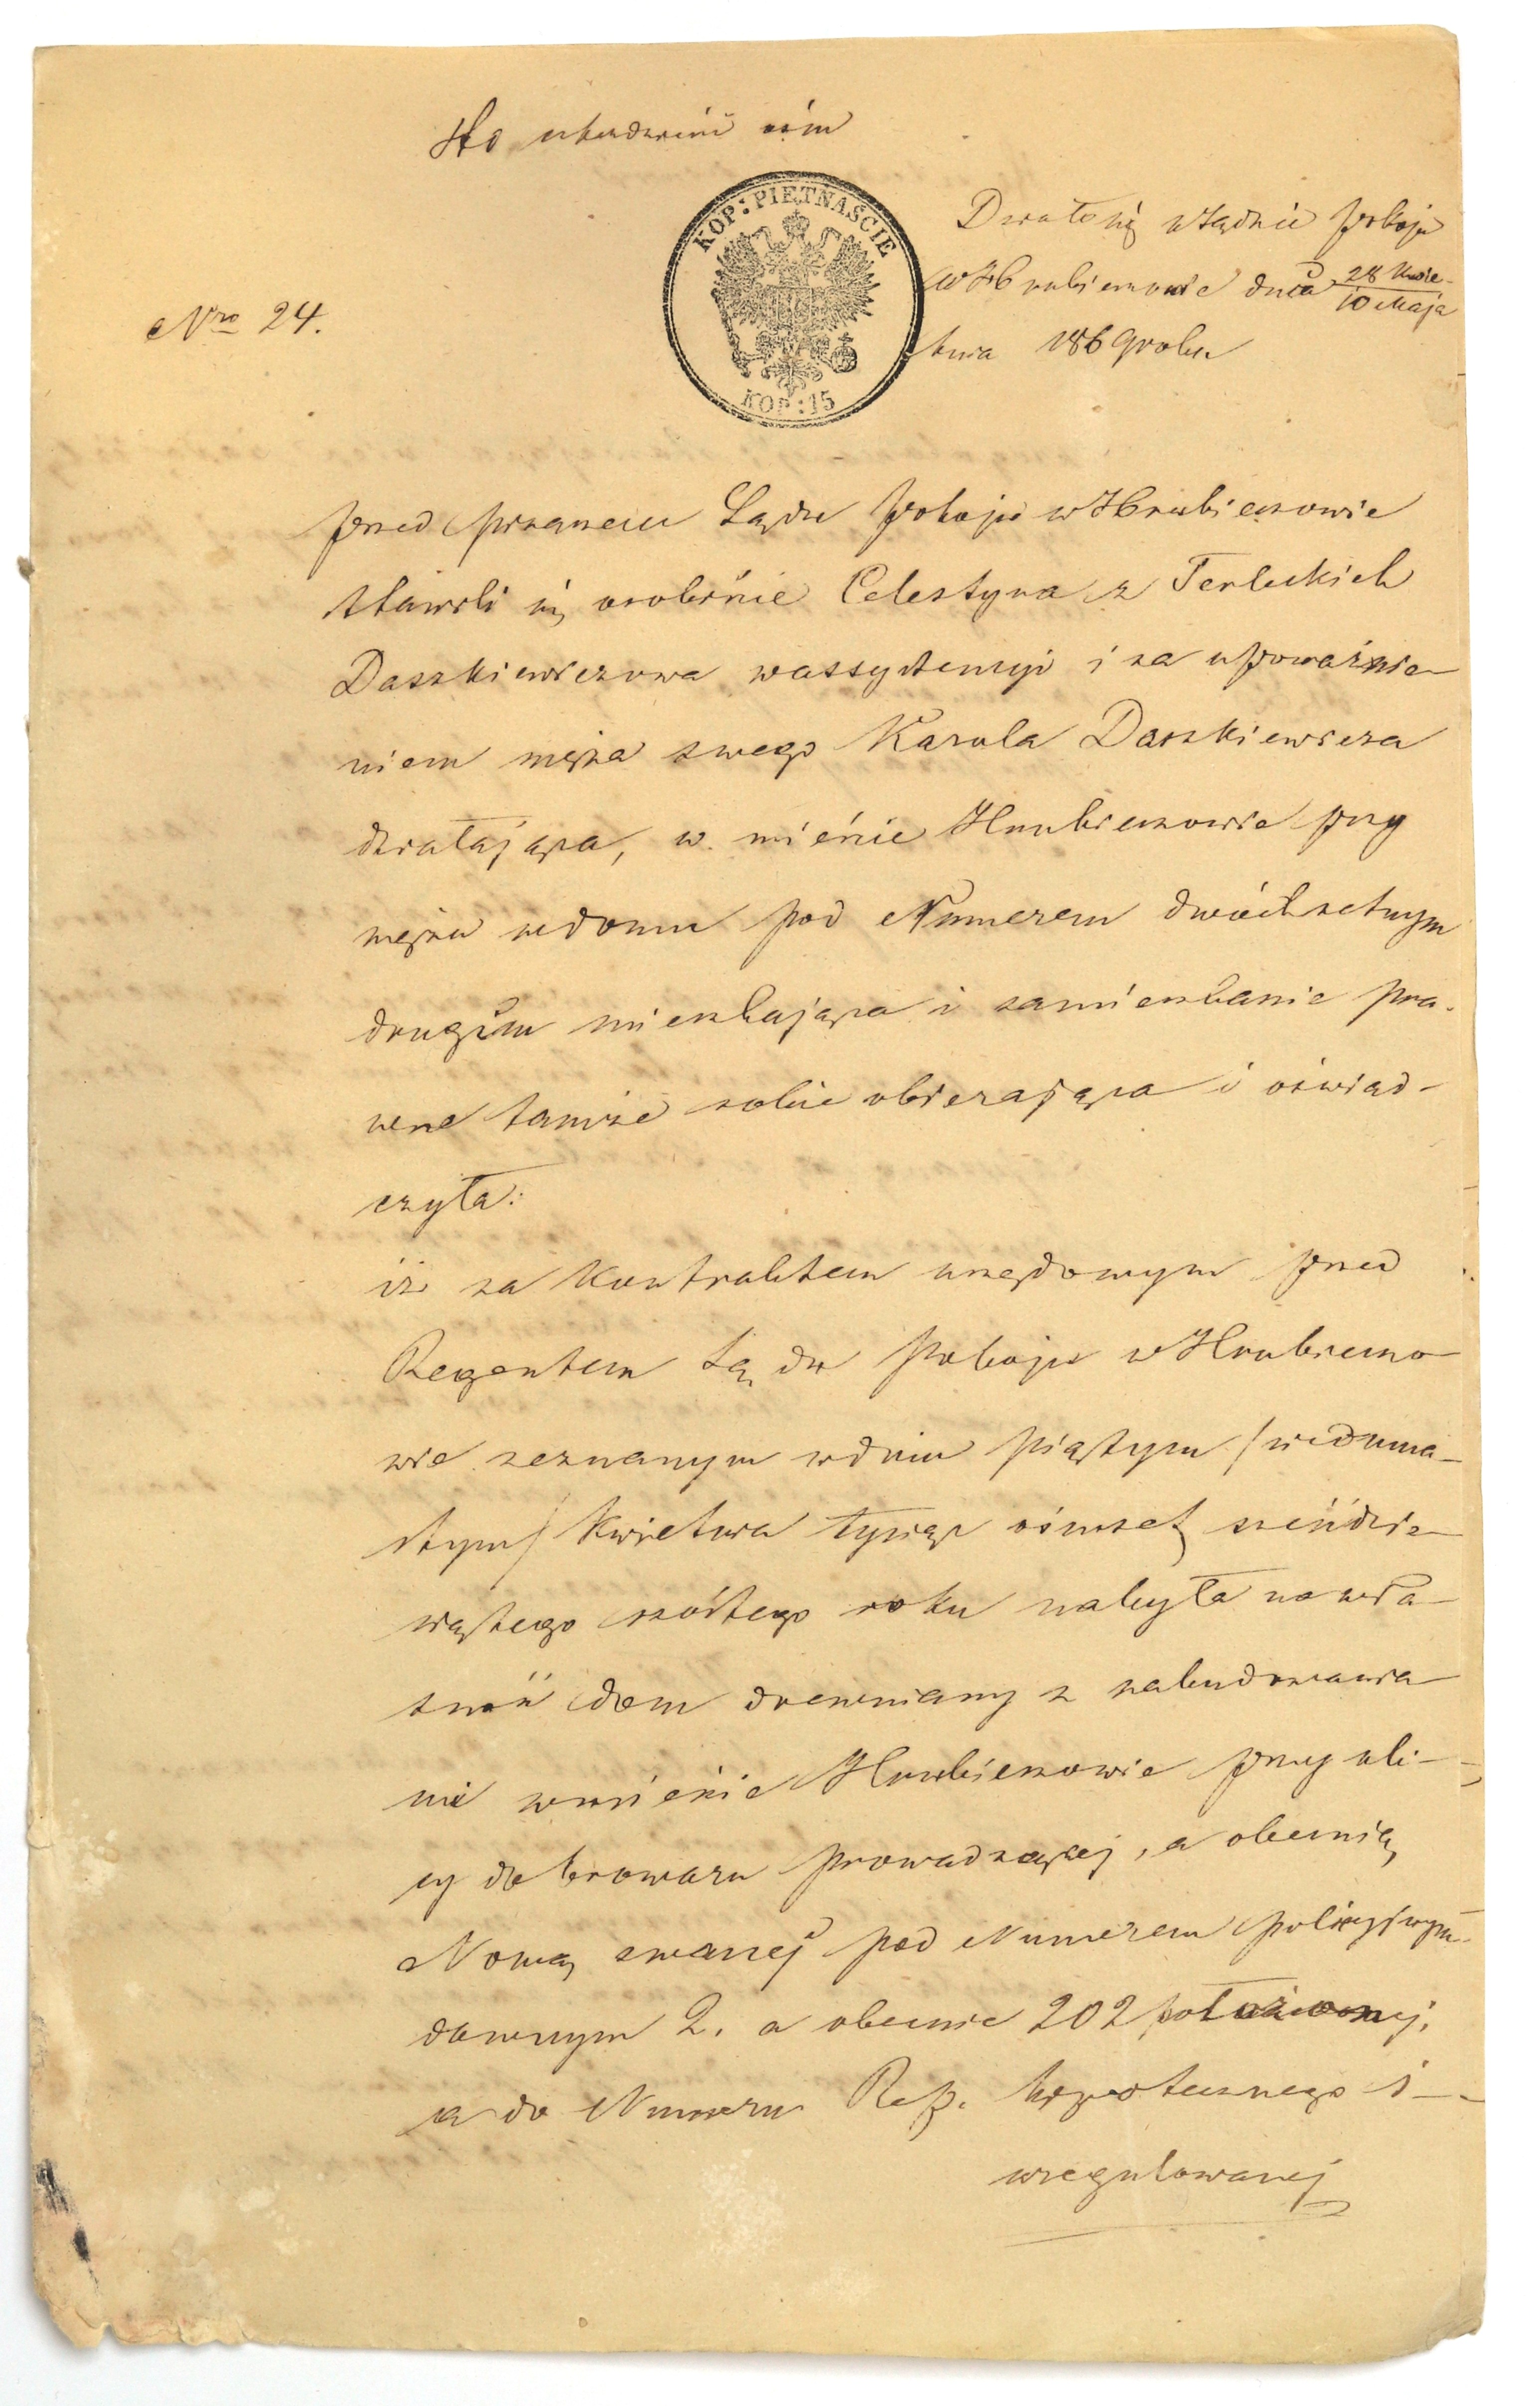 Sto osiemdziesiąt ośm
KOP: PIĘTNAŚCIE
KOP: 15
Działo się w Sądzie Pokoju
w Hrubieszowie dnia 28 Kwie-
10 Maja
tnia 1869 roku
Nro 24.
przed Pisarzem Sądu Pokoju w Hrubieszowie
stawili się osobiście Celestyna z Terleckich
Daszkiewiczowa w assystencyi i za upoważnie-
niem męża swego Karola Daszkiewicza
działająca, w mieście Hrubieszowie przy
mężu w domu pod Numerem dwóchsetnym
drugim mieszkająca i zamieszkanie pra-
wne tamże sobie obierająca i oświad-
czyła:
iż za Kontraktem urzędowym przed
Regentem Sądu Pokoju w Hrubieszo-
wie zeznanym w dniu piątym /siedmna-
stym/ Kwietnia tysiąc ośmset sześćdzie-
siątego szóstego roku nabyła na wła-
sność dom drewniany z zabudowania-
mi w mieście Hrubieszowie przy uli-
cy do browaru prowadzącej, a obecnie
Nową zwanej pod Numerem policyjnym
dawnym 2. a obecnie 202 położonej,
a do Numeru Rep. hypotecznego 1-
uregulowanej